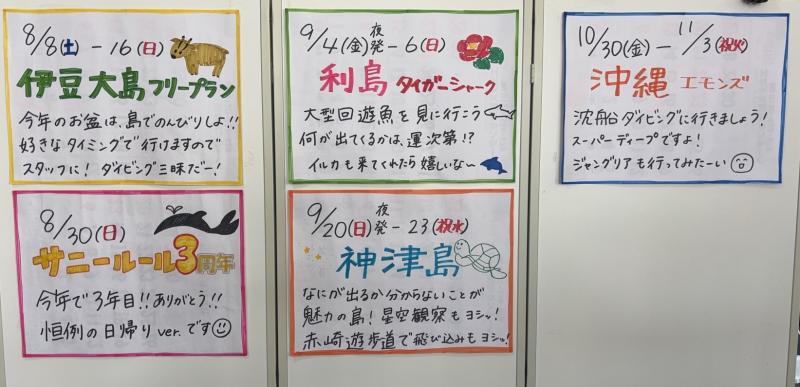 8/8(土)-16(日)
伊豆大島フリープラン
今年のお盆は、島でのんびりしよ!!
好きなタイミングで行けますので
スタッフに! ダイビング三昧だー!
8/30(日)
サニールール3周年
今年で3年目!! ありがとう!!
恒例の日帰りver.です
9/4(金)夜発-6(日)
利島 タイガーシャーク
大型回遊魚を見に行こう
何が出てくるかは、運次第!?
イルカも来てくれたら嬉しいな〜
9/20(日)夜発-23(祝水)
神津島
なにが出るか分からないことが
魅力の島! 星空観察もヨシッ!
赤崎遊歩道で飛び込みもヨシッ!
10/30(金)-11/3(祝火)
沖縄 エモンズ
沈船ダイビングに行きましょう!
スーパーディープですよ!
ジャングリアも行ってみたーい